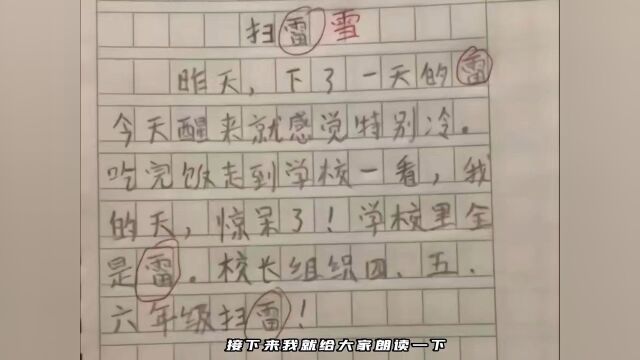 扫雷雪
昨天，下了一天的雷
今天醒来就感觉特别冷。
吃完饭走到学校一看，我
的天，惊呆了！学校里全
是雷。校长组织四、五、
六年级扫雷！
接下来我就给大家朗读一下